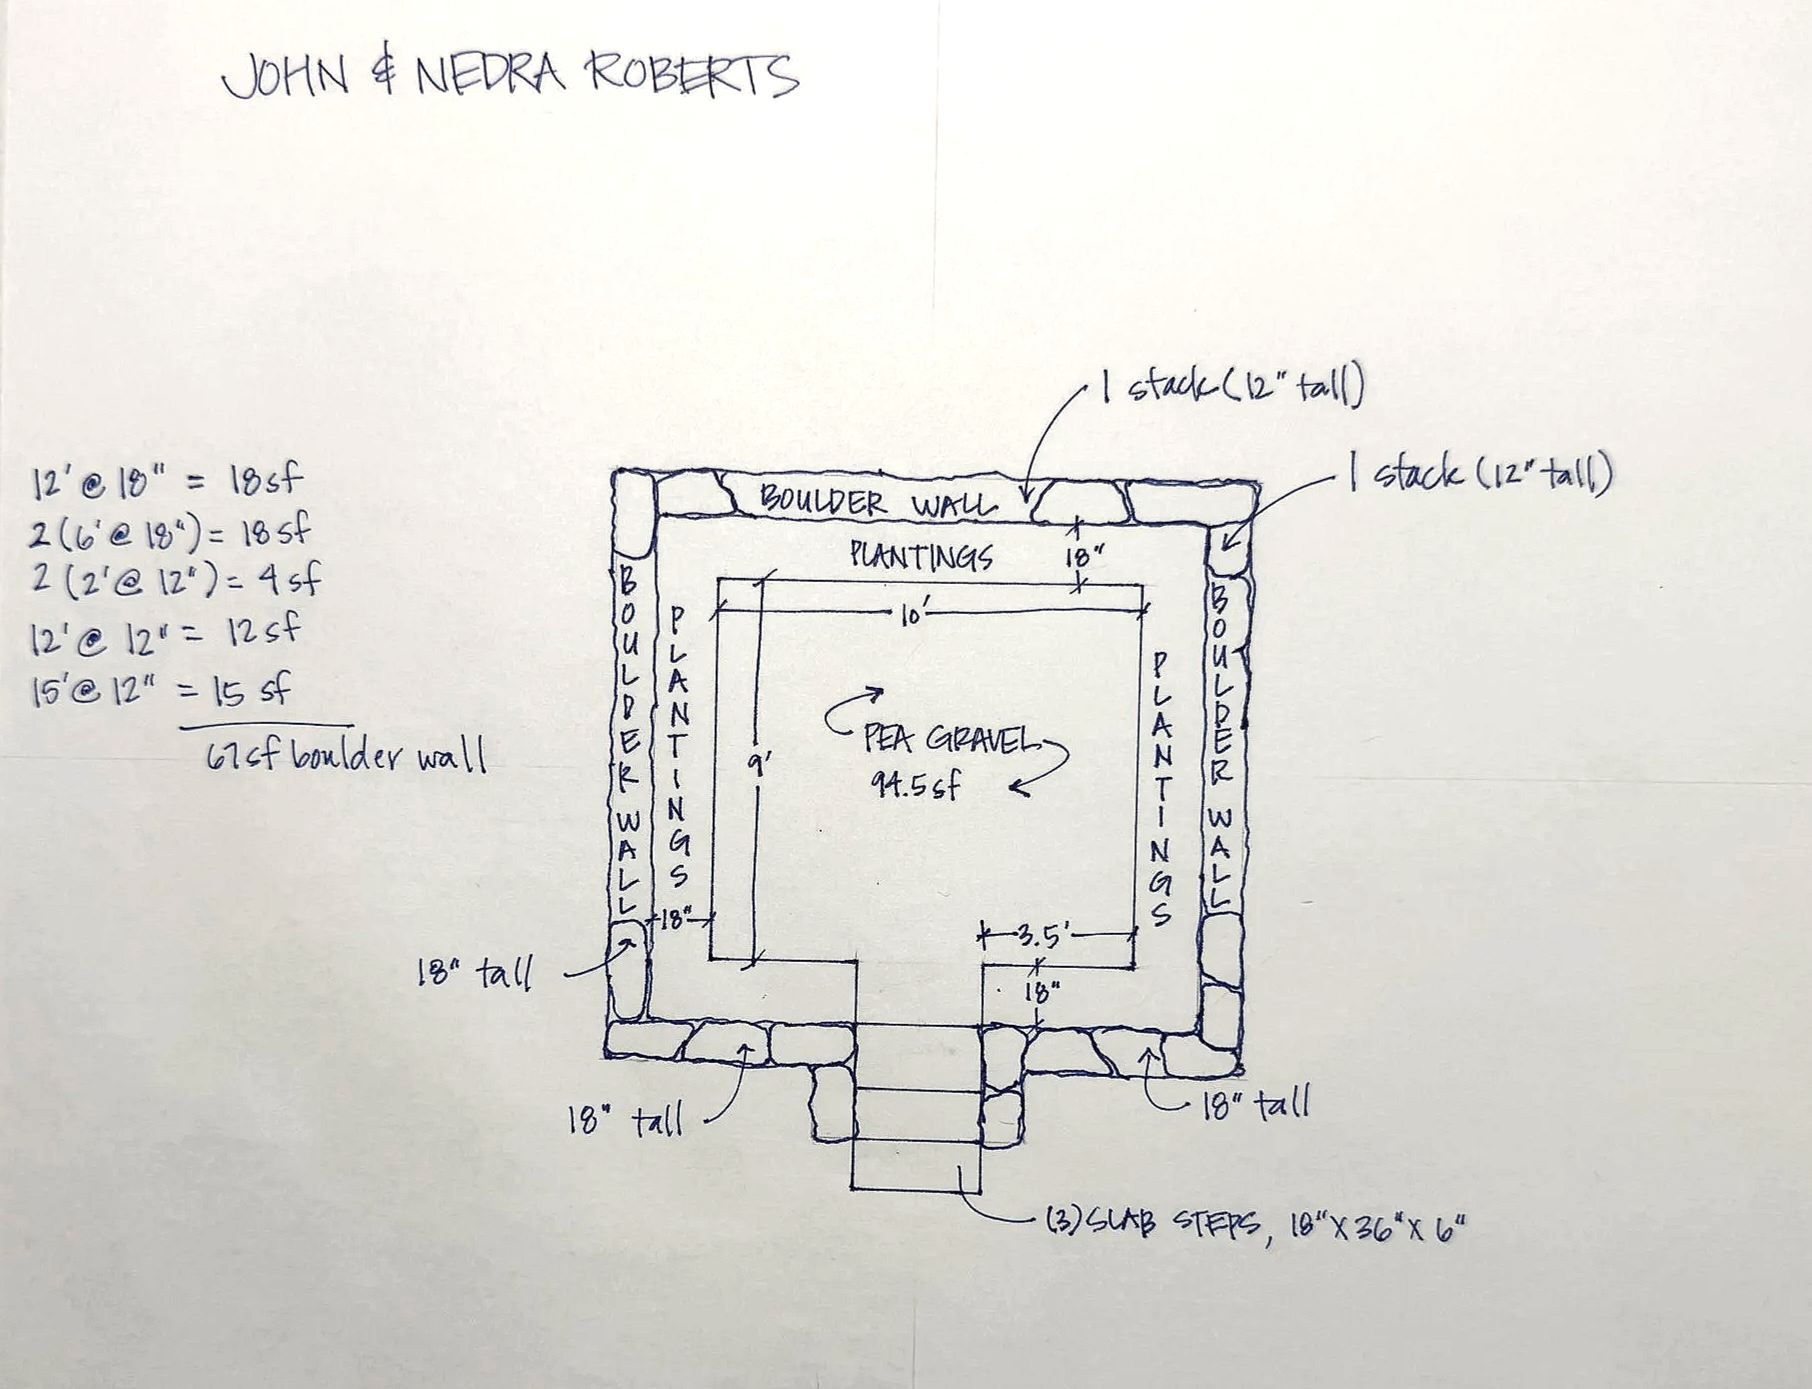 JOHN & NEDRA ROBERTS
1 stack (12" tall)
1 stack (12" tall)
12' @ 18" = 18sf
2 (6' @ 18") = 18sf
2 (2' @ 12") = 4sf
12' @ 12" = 12sf
15' @ 12" = 15 sf
67sf boulder wall
BOULDER WALL
PLANTINGS
18"
BOULDER WALL
PLANTINGS
10'
9'
PEA GRAVEL
94.5sf
PLANTINGS
BOULDER WALL
18"
3.5'
18"
18" tall
18" tall
18" tall
(3) SLAB STEPS, 18" X 36" X 6"